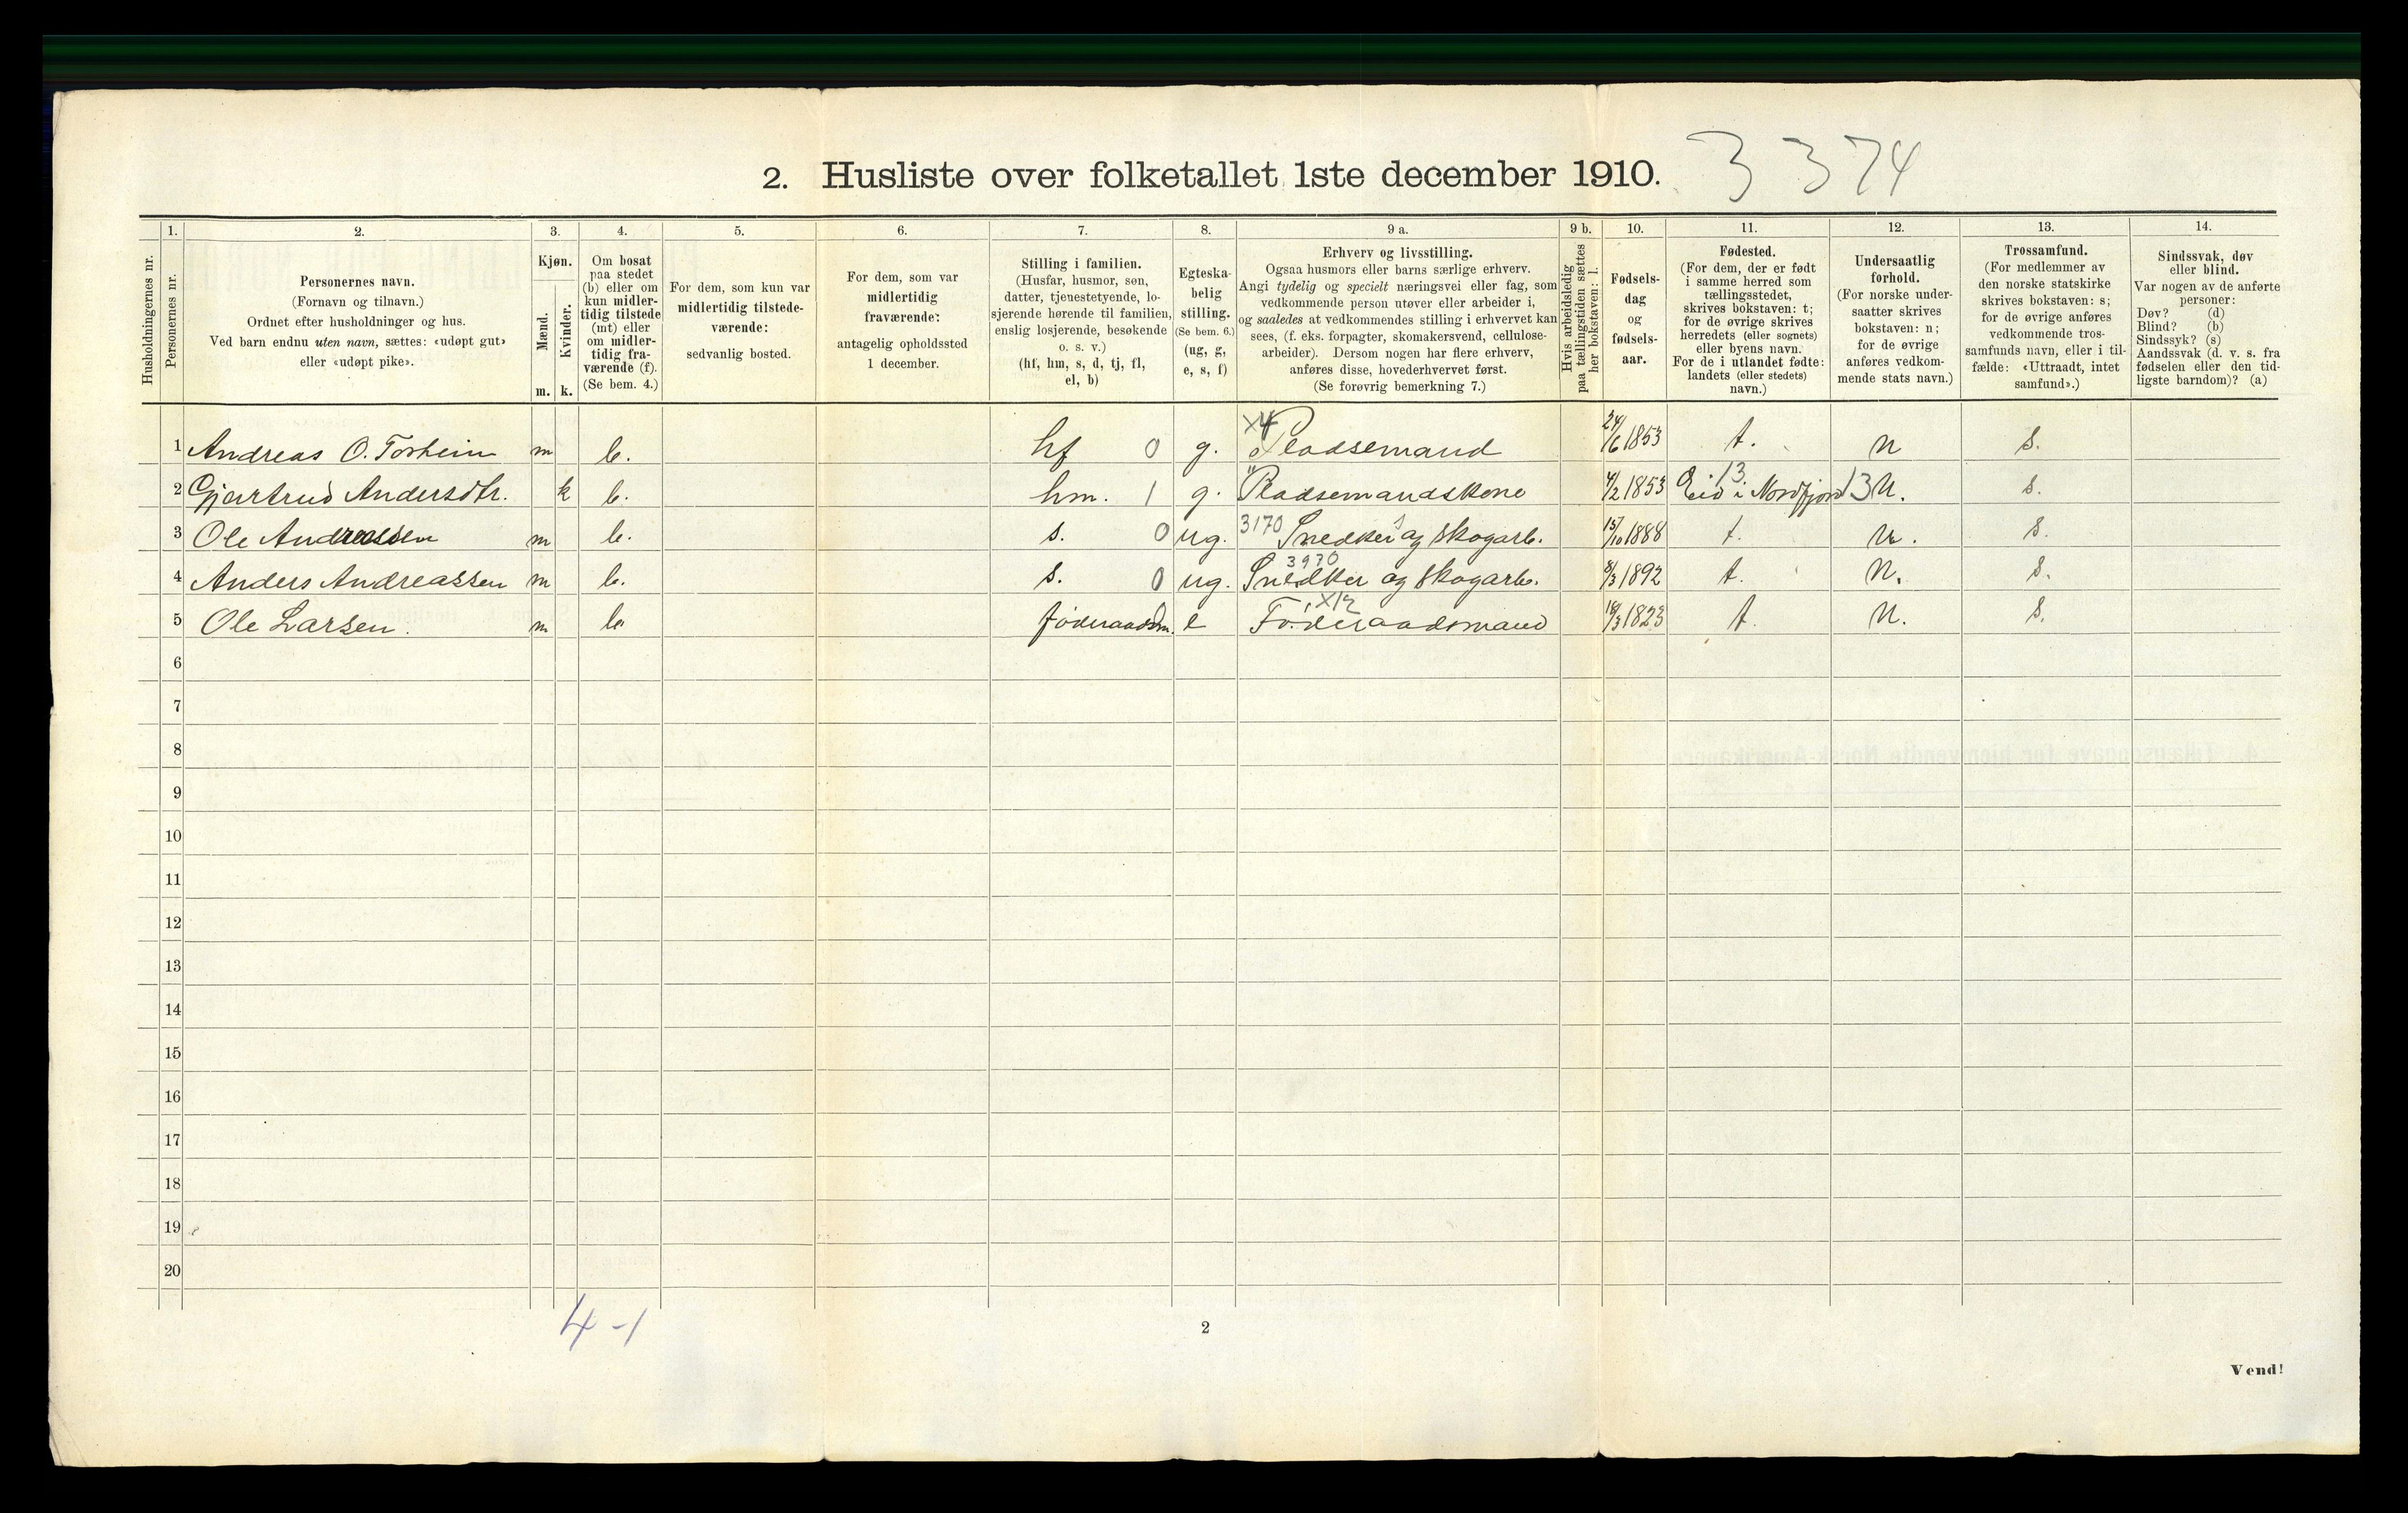 2. Husliste over folketallet 1ste december 1910. 3 374
Husholdningernes nr.
1.
Personernes nr.
2.
Personernes navn.
(Fornavn og tilnavn.)
Ordnet efter husholdninger og hus.
Ved barn endnu uten navn, sættes: «udøpt gut»
eller «udøpt pike».
3.
Kjøn.
Mænd.
Kvinder.
m. k.
4.
Om bosat
paa stedet
(b) eller om
kun midler-
tidig tilstede
(mt) eller
om midler-
tidig fra-
værende (f).
(Se bem. 4.)
5.
For dem, som kun var
midlertidig tilstede-
værende:
sedvanlig bosted.
6.
For dem, som var
midlertidig
fraværende:
antagelig opholdssted
1 december.
7.
Stilling i familien.
(Husfar, husmor, søn,
datter, tjenestetyende, lo-
sjerende hørende til familien,
enslig losjerende, besøkende
o. s. v.)
(hf, hm, s, d, tj, fl,
el, b)
8.
Egteska-
belig
stilling.
(Se bem. 6.)
(ug, g,
e, s, f)
9 a.
Erhverv og livsstilling.
Ogsaa husmors eller barns særlige erhverv.
Angi tydelig og specielt næringsvei eller fag, som
vedkommende person utøver eller arbeider i,
og saaledes at vedkommendes stilling i erhvervet kan
sees, (f. eks. forpagter, skomakersvend, cellulose-
arbeider). Dersom nogen har flere erhverv,
anføres disse, hovederhvervet først.
(Se forøvrig bemerkning 7.)
9 b.
Hvis arbeidsledig
paa tællingstiden sættes
her bokstaven: l.
10.
Fødsels-
dag
og
fødsels-
aar.
11.
Fødested.
(For dem, der er født
i samme herred som
tællingsstedet,
skrives bokstaven: t;
for de øvrige skrives
herredets (eller sognets)
eller byens navn.
For de i utlandet fødte:
landets (eller stedets)
navn.)
12.
Undersaatlig
forhold.
(For norske under-
saatter skrives
bokstaven: n;
for de øvrige
anføres vedkom-
mende stats navn.)
13.
Trossamfund.
(For medlemmer av
den norske statskirke
skrives bokstaven: s;
for de øvrige anføres
vedkommende tros-
samfunds navn, eller i til-
fælde: «Uttraadt, intet
samfund».)
14.
Sindssvak, døv
eller blind.
Var nogen av de anførte
personer:
Døv? (d)
Blind? (b)
Sindssyk? (s)
Aandssvak (d. v. s. fra
fødselen eller den tid-
ligste barndom)? (a)
1 Andreas O. Torheim m b. hf 0 g. X4 Pladsemand 24/6 1853 t. n s.
2 Gjertrud Andersdtr. k b. hm. 1 g. " Pladsemandskone 4/2 1853 Eid i Nordfjord 13 13 n. s.
3 Ole Andreassen m b. s. 0 ug. 3170 Snedker og skogarb. 15/10 1888 t. n. s.
4 Anders Andreassen m b. s. 0 ug. 3970 Snedker og skogarb. 8/3 1892 t. n. s.
5 Ole Larsen. m b. føderaadsm. e X12 Føderaadsmand 1823 t. n. s.
6
7
8
9
10
11
12
13
14
15
16
17
18
19
20
4 - 1
2
Vend!